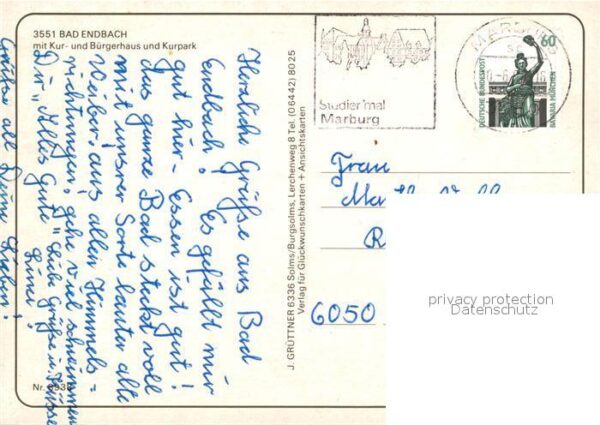 3551 BAD ENDBACH
mit Kur- und Bürgerhaus und Kurpark
Herzliche Grüße aus Bad
Endbach. Es gefällt mir
gut hier - Essen ist gut!
Das ganze Bad steckt voll
mit unsrer Sorte lauter alte
Weiber, aus allen Himmels=
richtungen, gehe viel schwimmen
Dir "Alles Gute" Liebe Grüße u. Küsse
Grüße all Deine Lieben!
Nr.
J. GRÜTTNER 6336 Solms/Burgsolms, Lerchenweg 8 Tel. (06442) 8025
Verlag für Glückwunschkarten + Ansichtskarten
Studier mal
Marburg
MARBURG
60
DEUTSCHE BUNDESPOST
BAVARIA MÜNCHEN
Frau
6050
privacy protection
Datenschutz